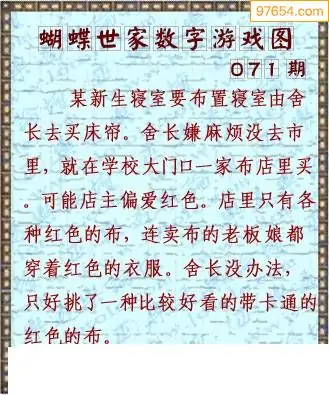 97654.com
蝴蝶世家数字游戏图
071期
某新生寝室要布置寝室由舍
长去买床帘。舍长嫌麻烦没去市
里，就在学校大门口一家布店里买
。可能店主偏爱红色。店里只有各
种红色的布，连卖布的老板娘都
穿着红色的衣服。舍长没办法，
只好挑了一种比较好看的带卡通的
红色的布。